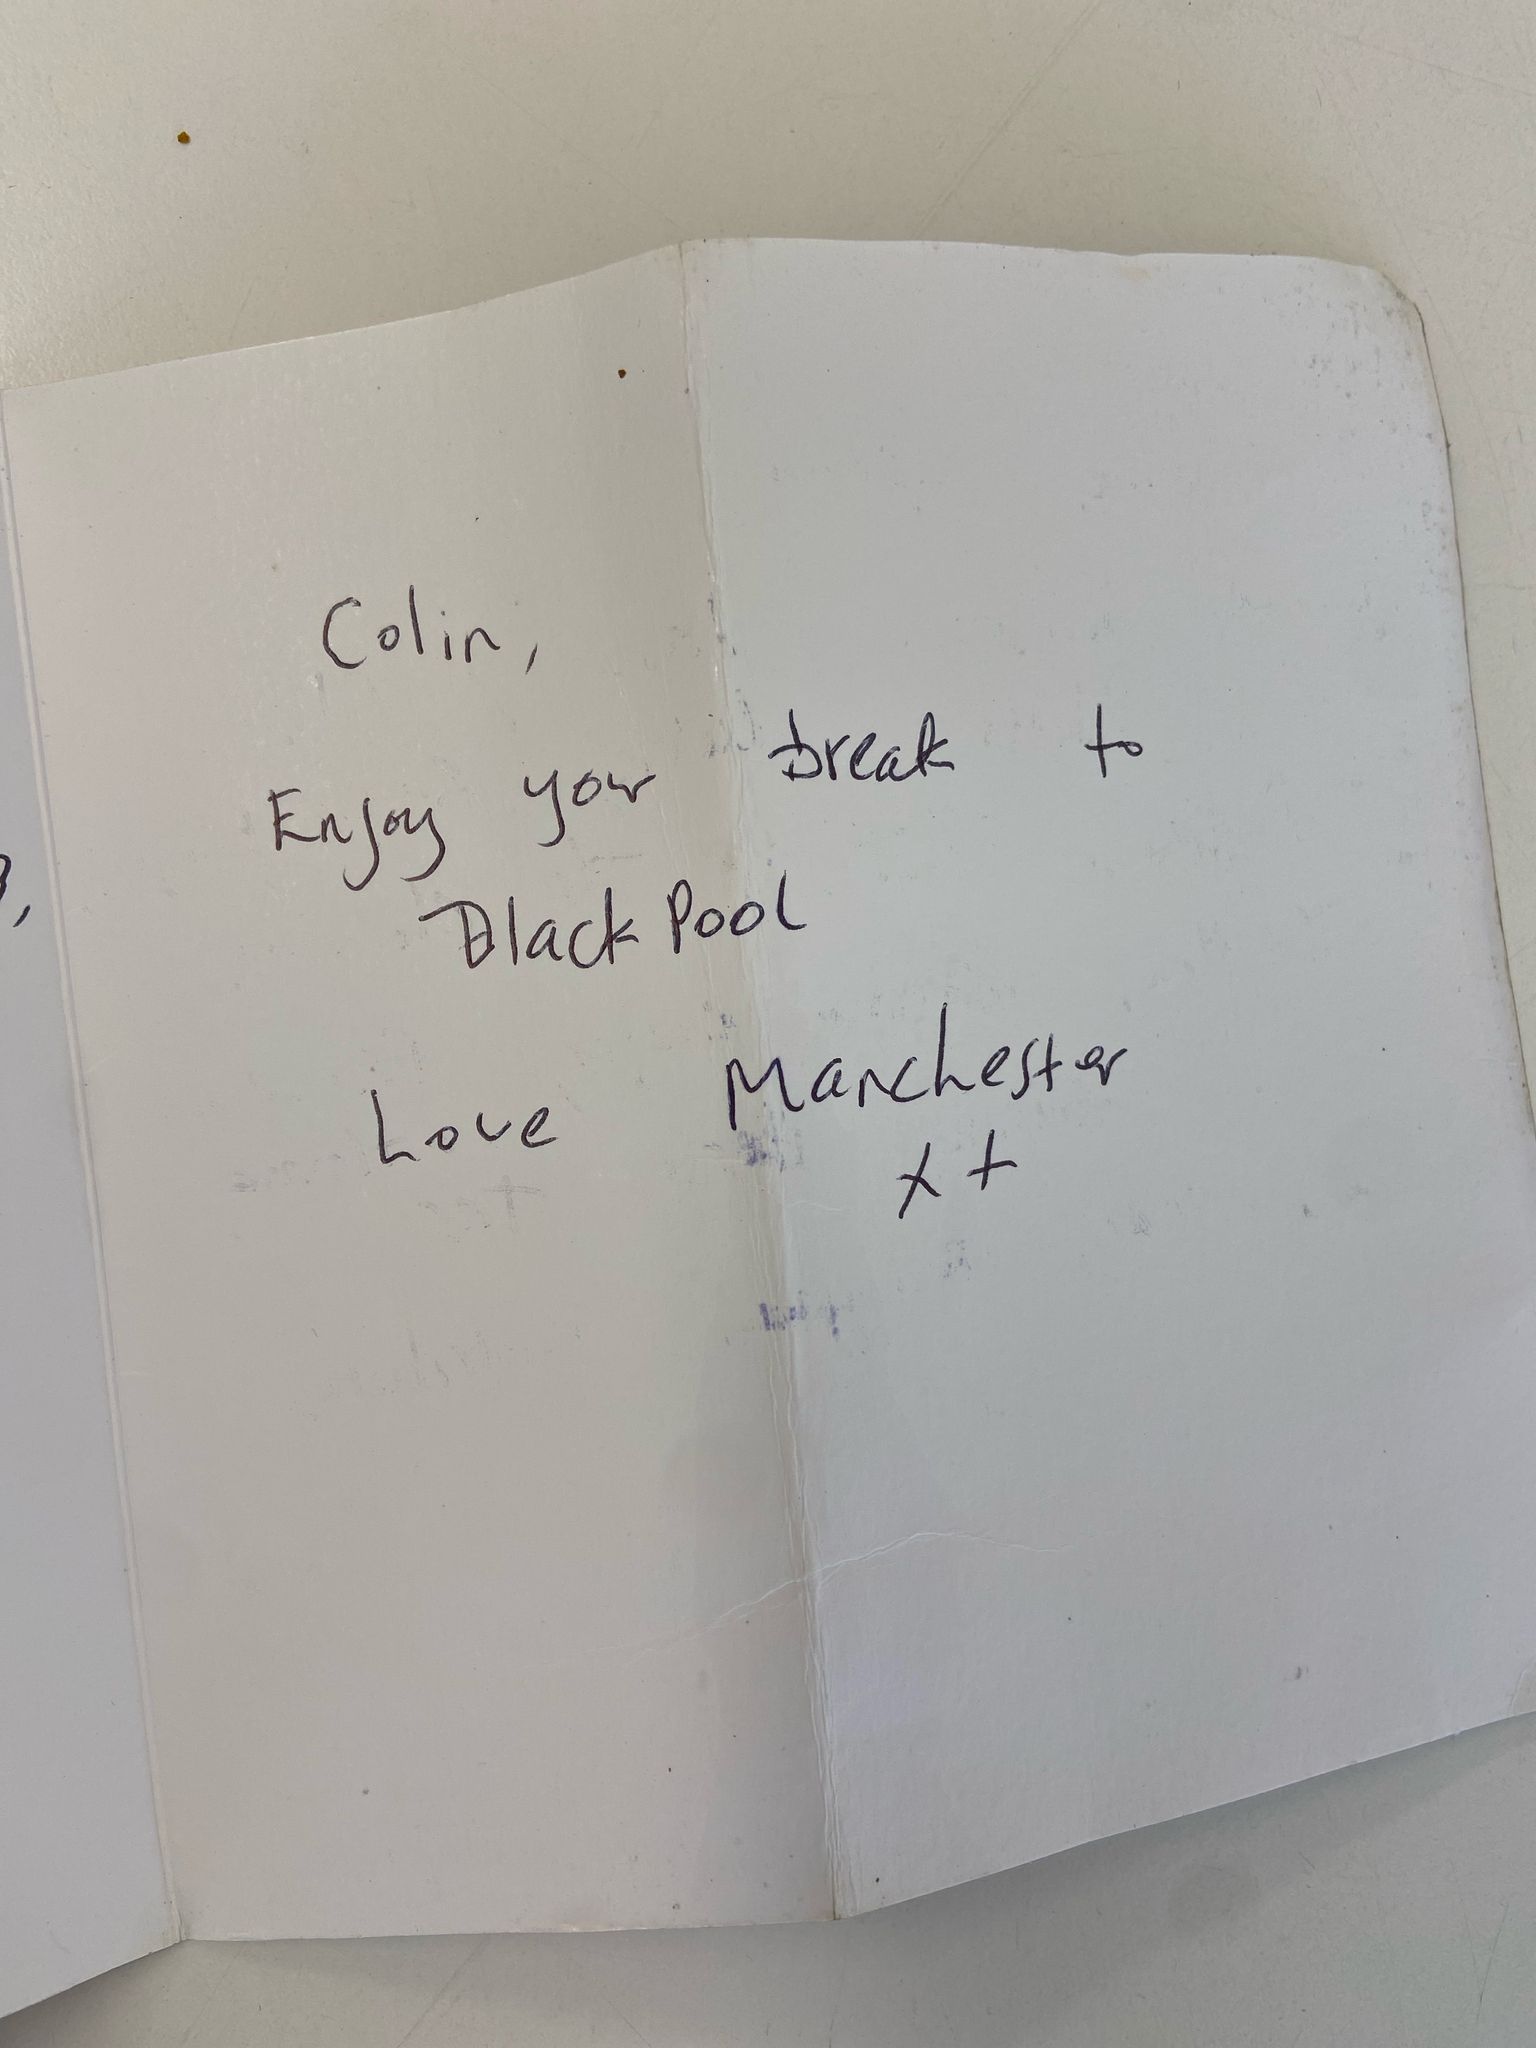 Colin,
Enjoy your break to
Black Pool
Love Manchester
x x